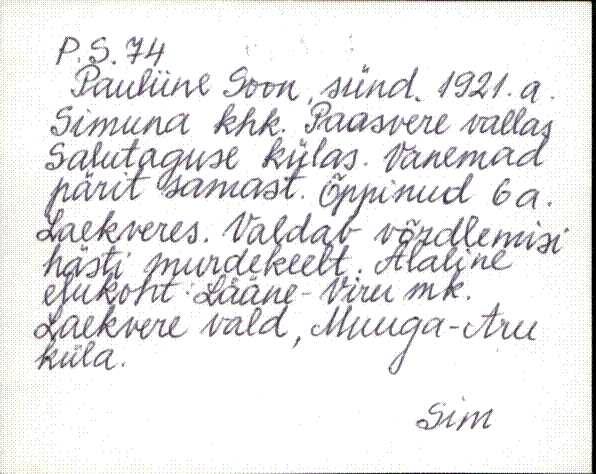 P.S. 74
Pauliine Soon, sünd. 1921. a.
Simuna khk. Paasvere vallas
Salutaguse külas. Vanemad
pärit samast. Õppinud 6 a.
Laekveres. Valdab võrdlemisi
hästi murdekeelt. Alaline
elukoht: Lääne-Viru mk.
Laekvere vald, Muuga-Aru
küla.
Sim